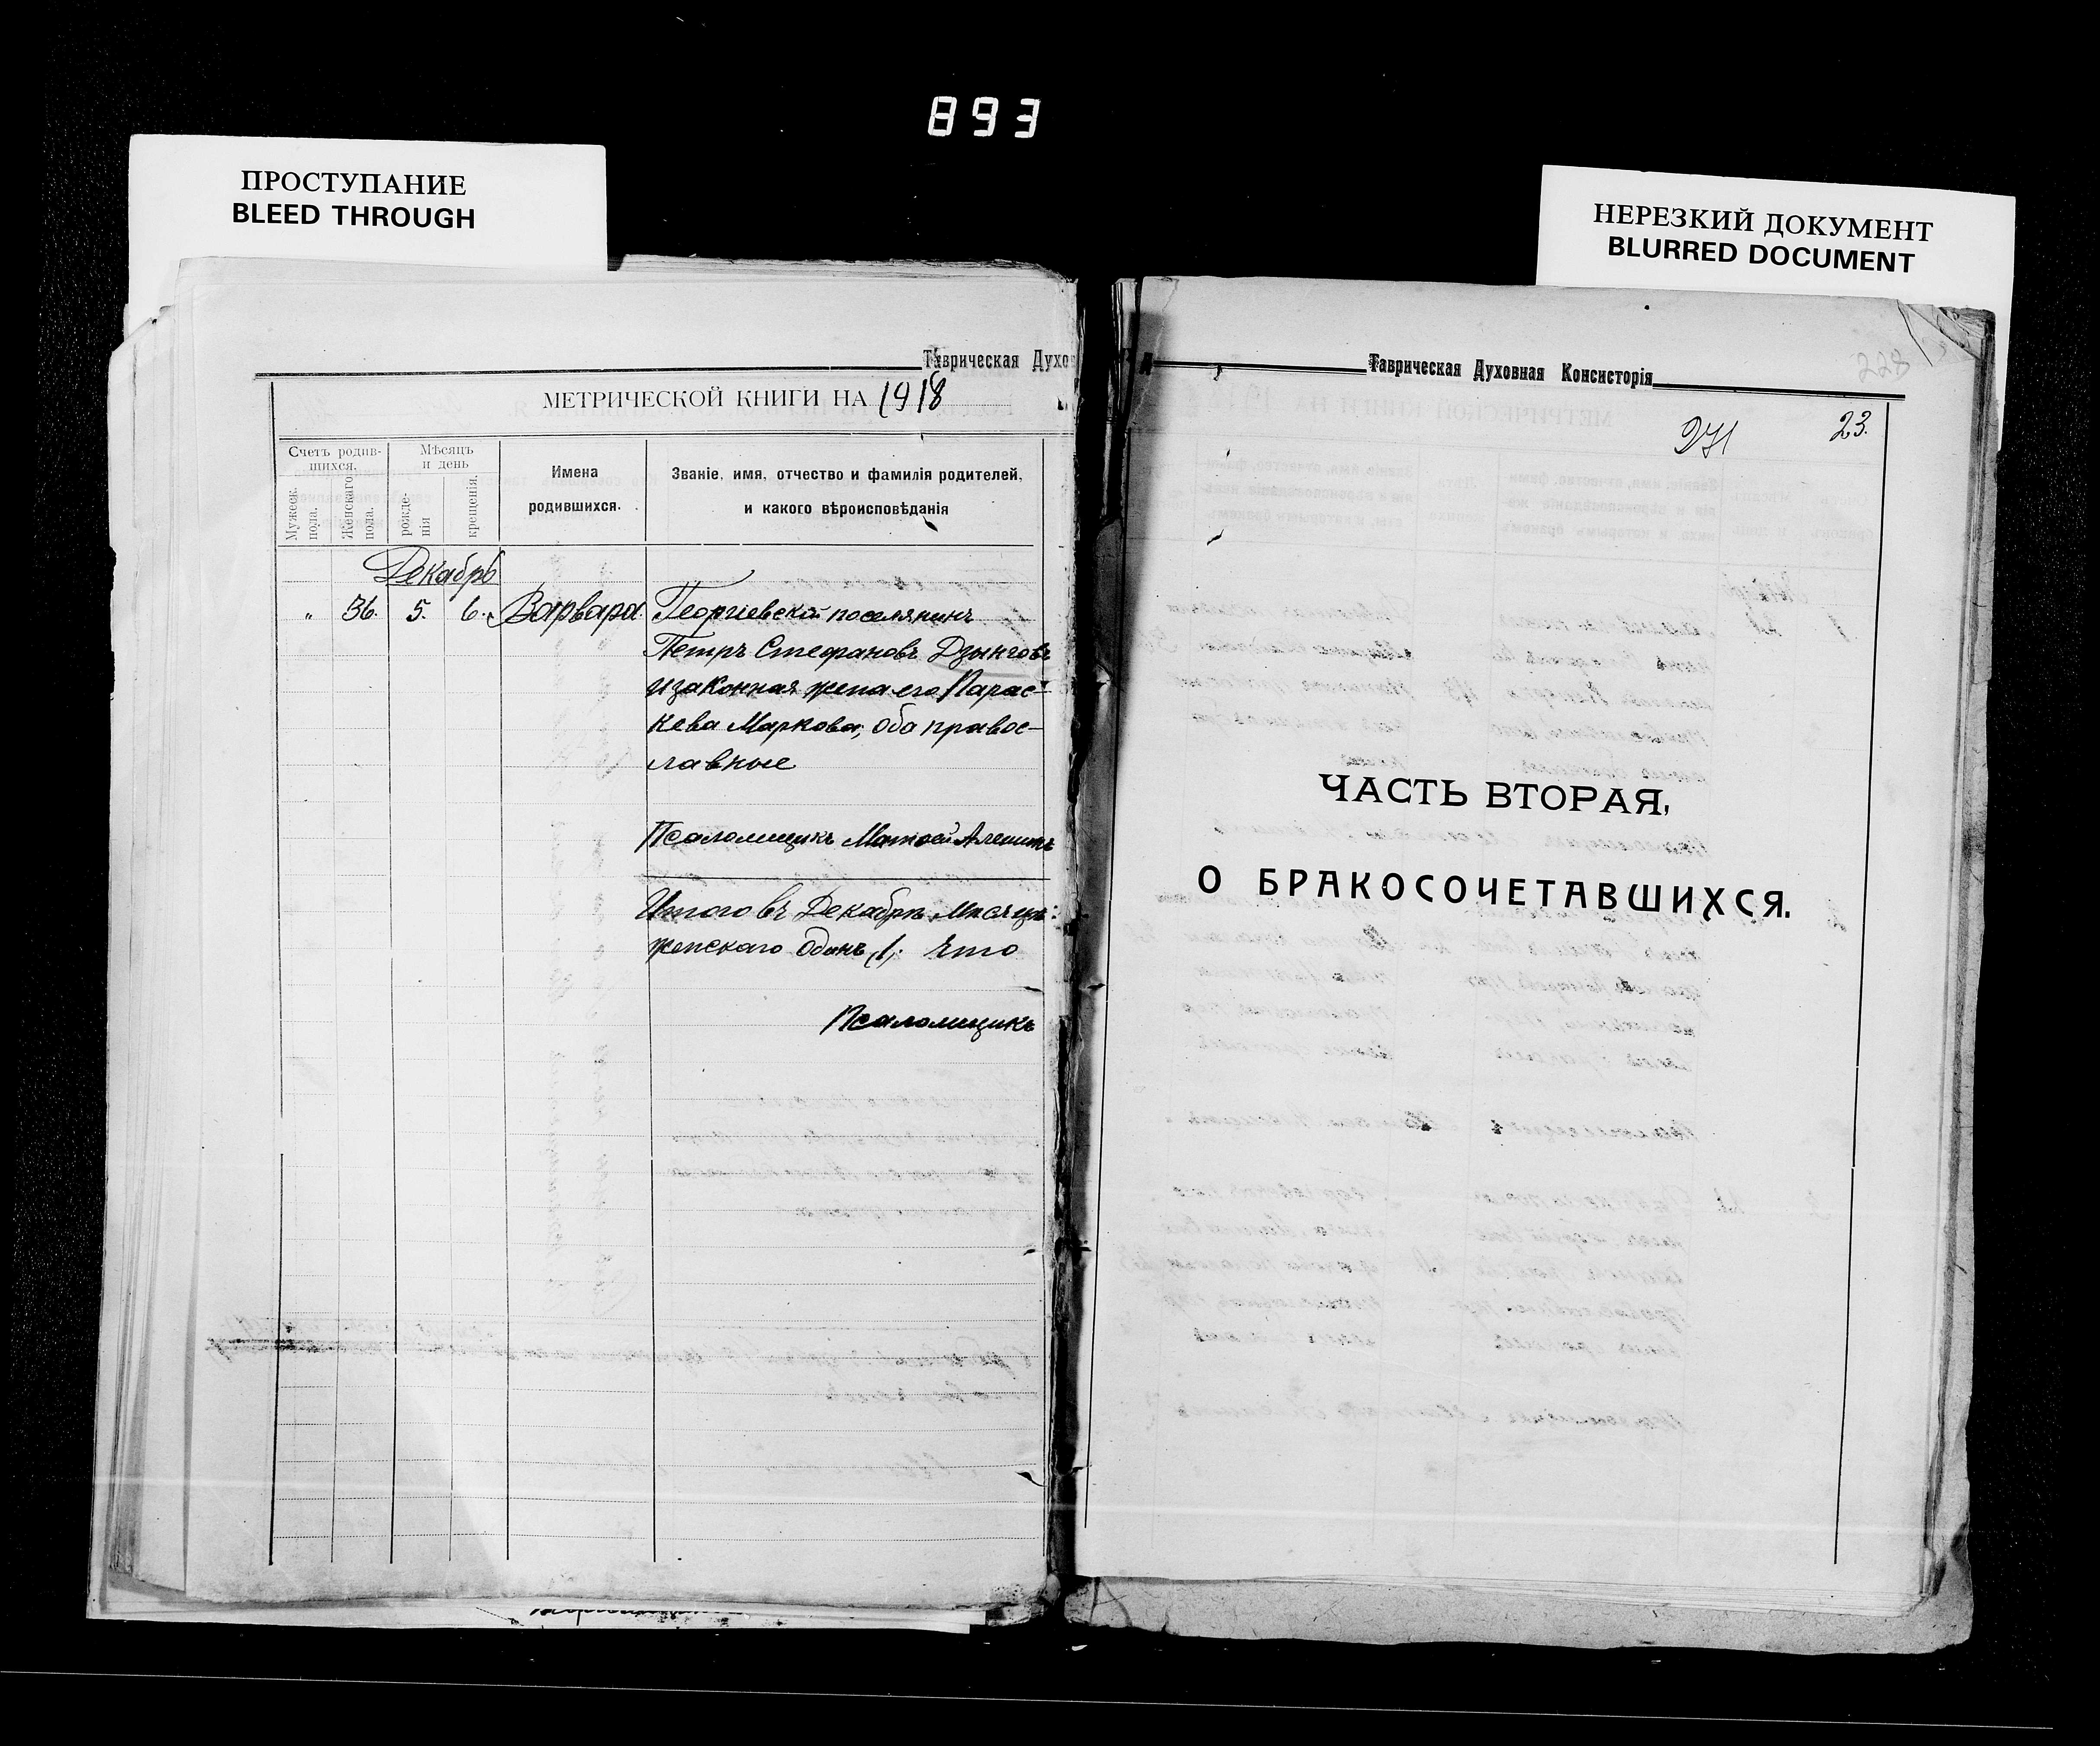 893
ПРОСТУПАНИЕ
BLEED THROUGH
НЕРЕЗКИЙ ДОКУМЕНТ
BLURRED DOCUMENT
Таврическая Духо
МЕТРИЧЕСКОЙ КНИГИ НА 1918
Счетъ родив-
шихся.
Мужеск.
пола.
Женскаго
пола.
Мѣсяцъ
и день
рожде-
нія
крещенія.
Имена
родившихся.
Званіе, имя, отчество и фамилія родителей,
и какого вѣроисповѣданія
Декабрь
„ 36. 5. 6. Варвара. Георгіевскій поселянинъ
Петръ Стефановъ Дзынговъ
и законная жена его Парас-
кева Маркова, оба правос-
лавные
Псаломщикъ Матѳей
Итого въ Декабрѣ мѣсяцѣ:
женскаго одинъ (1). Что
Псаломщикъ
Таврическая Духовная Консисторія
228
271
23.
ЧАСТЬ ВТОРАЯ,
О БРАКОСОЧЕТАВШИХСЯ.